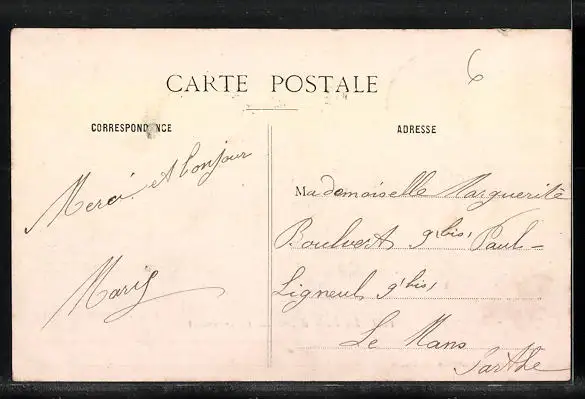 6
CARTE POSTALE
CORRESPONDANCE
ADRESSE
Merci et bonjour
Marie
Mademoiselle Marguerite
Boulvert 9 bis, Paul-
Ligneul 9 bis,
Le Mans
Sarthe